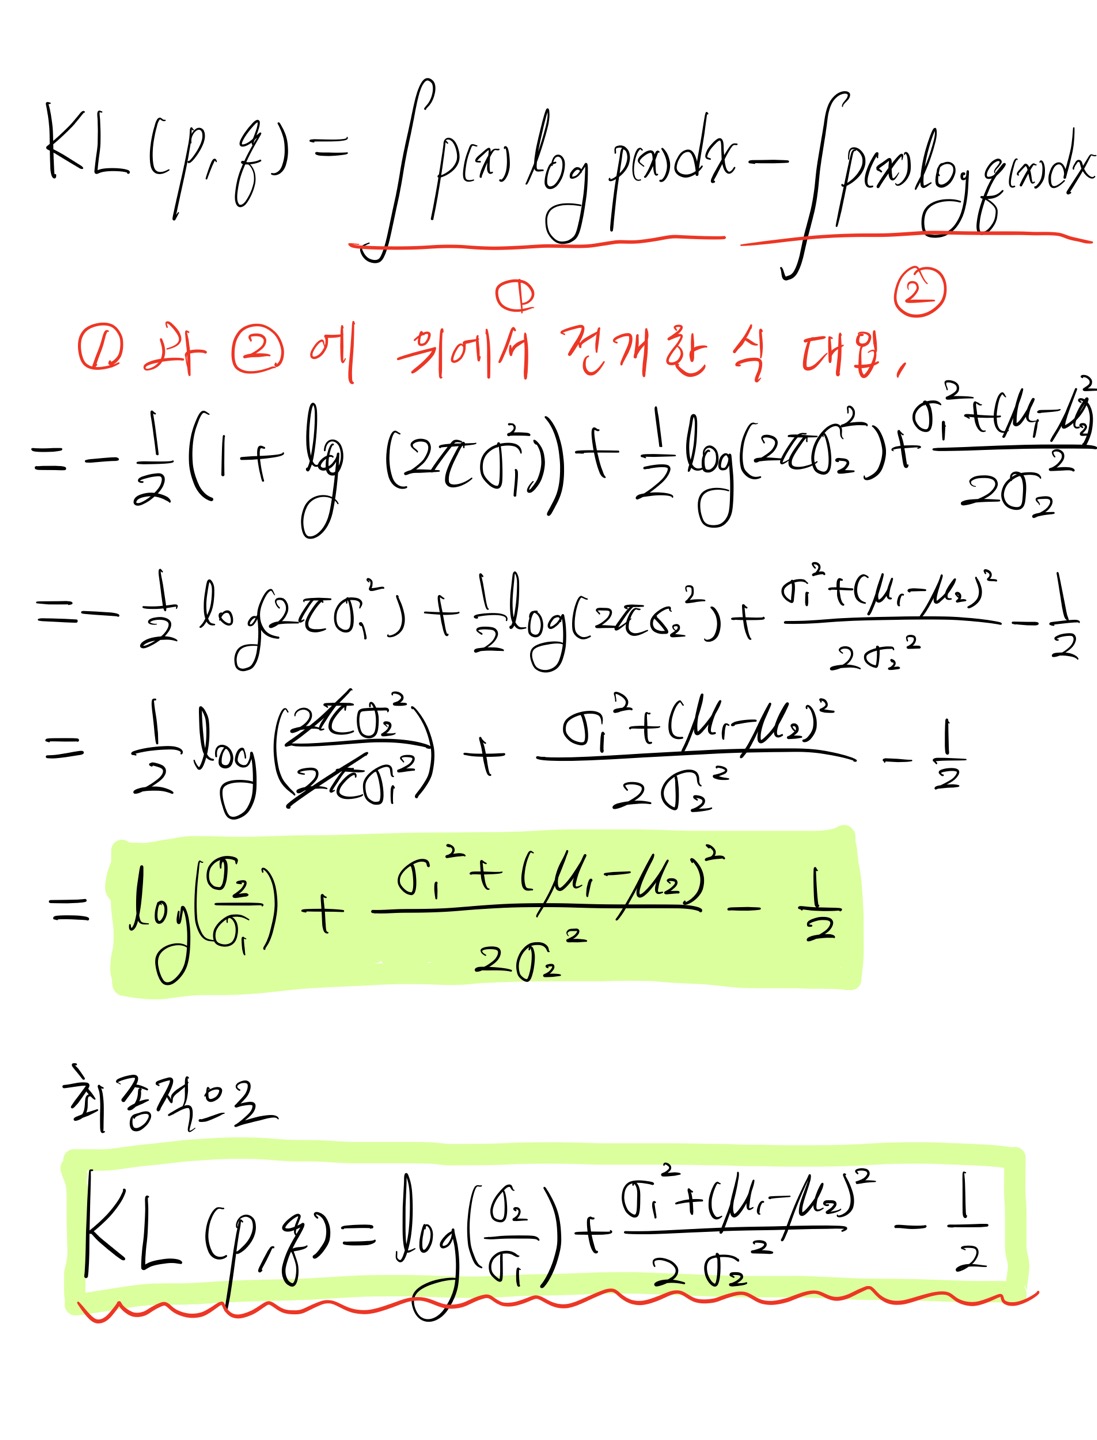 KL(p,q) = ∫p(x) log p(x)dx − ∫p(x)log q(x)dx
① ②
①과 ②에 위에서 전개한 식 대입,
= − 1/2 (1 + log (2πσ₁²)) + 1/2 log(2πσ₂²) + (σ₁² + (μ₁−μ₂)²)/(2σ₂²)
= − 1/2 log(2πσ₁²) + 1/2 log(2πσ₂²) + (σ₁² + (μ₁−μ₂)²)/(2σ₂²) − 1/2
= 1/2 log(2πσ₂²/2πσ₁²) + (σ₁² + (μ₁−μ₂)²)/(2σ₂²) − 1/2
= log(σ₂/σ₁) + (σ₁² + (μ₁−μ₂)²)/(2σ₂²) − 1/2
최종적으로
KL(p,q) = log(σ₂/σ₁) + (σ₁² + (μ₁−μ₂)²)/(2σ₂²) − 1/2